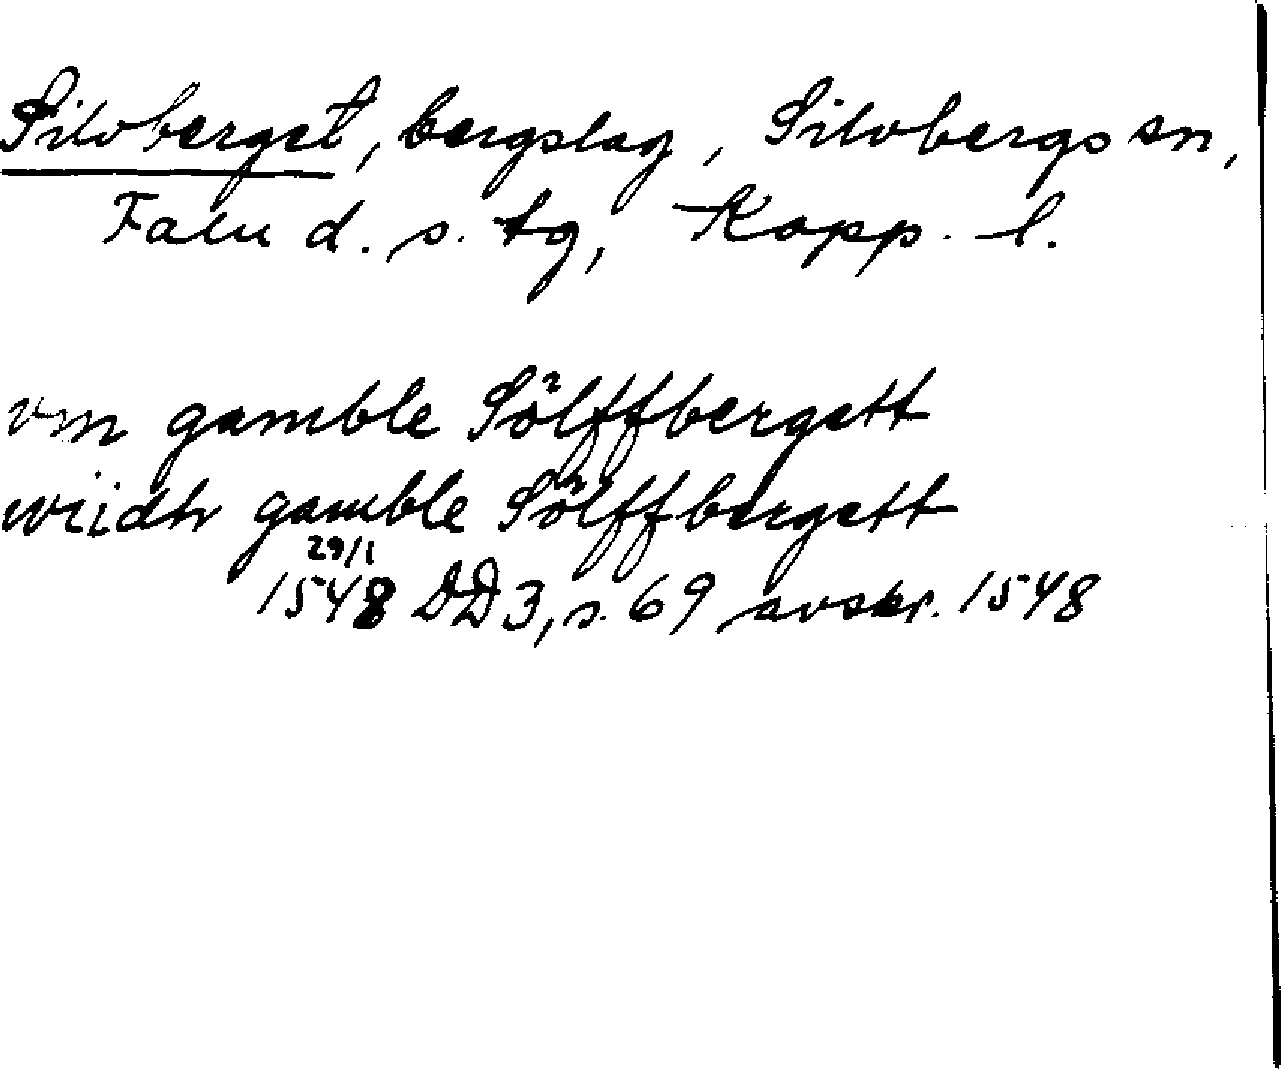 Silvberget, bergslag, Silvbergs sn,
Falu d. s. tg, Kopp. l.
vm gamble Sölffbergett
wiidh gamble Sölffbergett
29/1
1548 DD3, s. 69 avskr. 1548